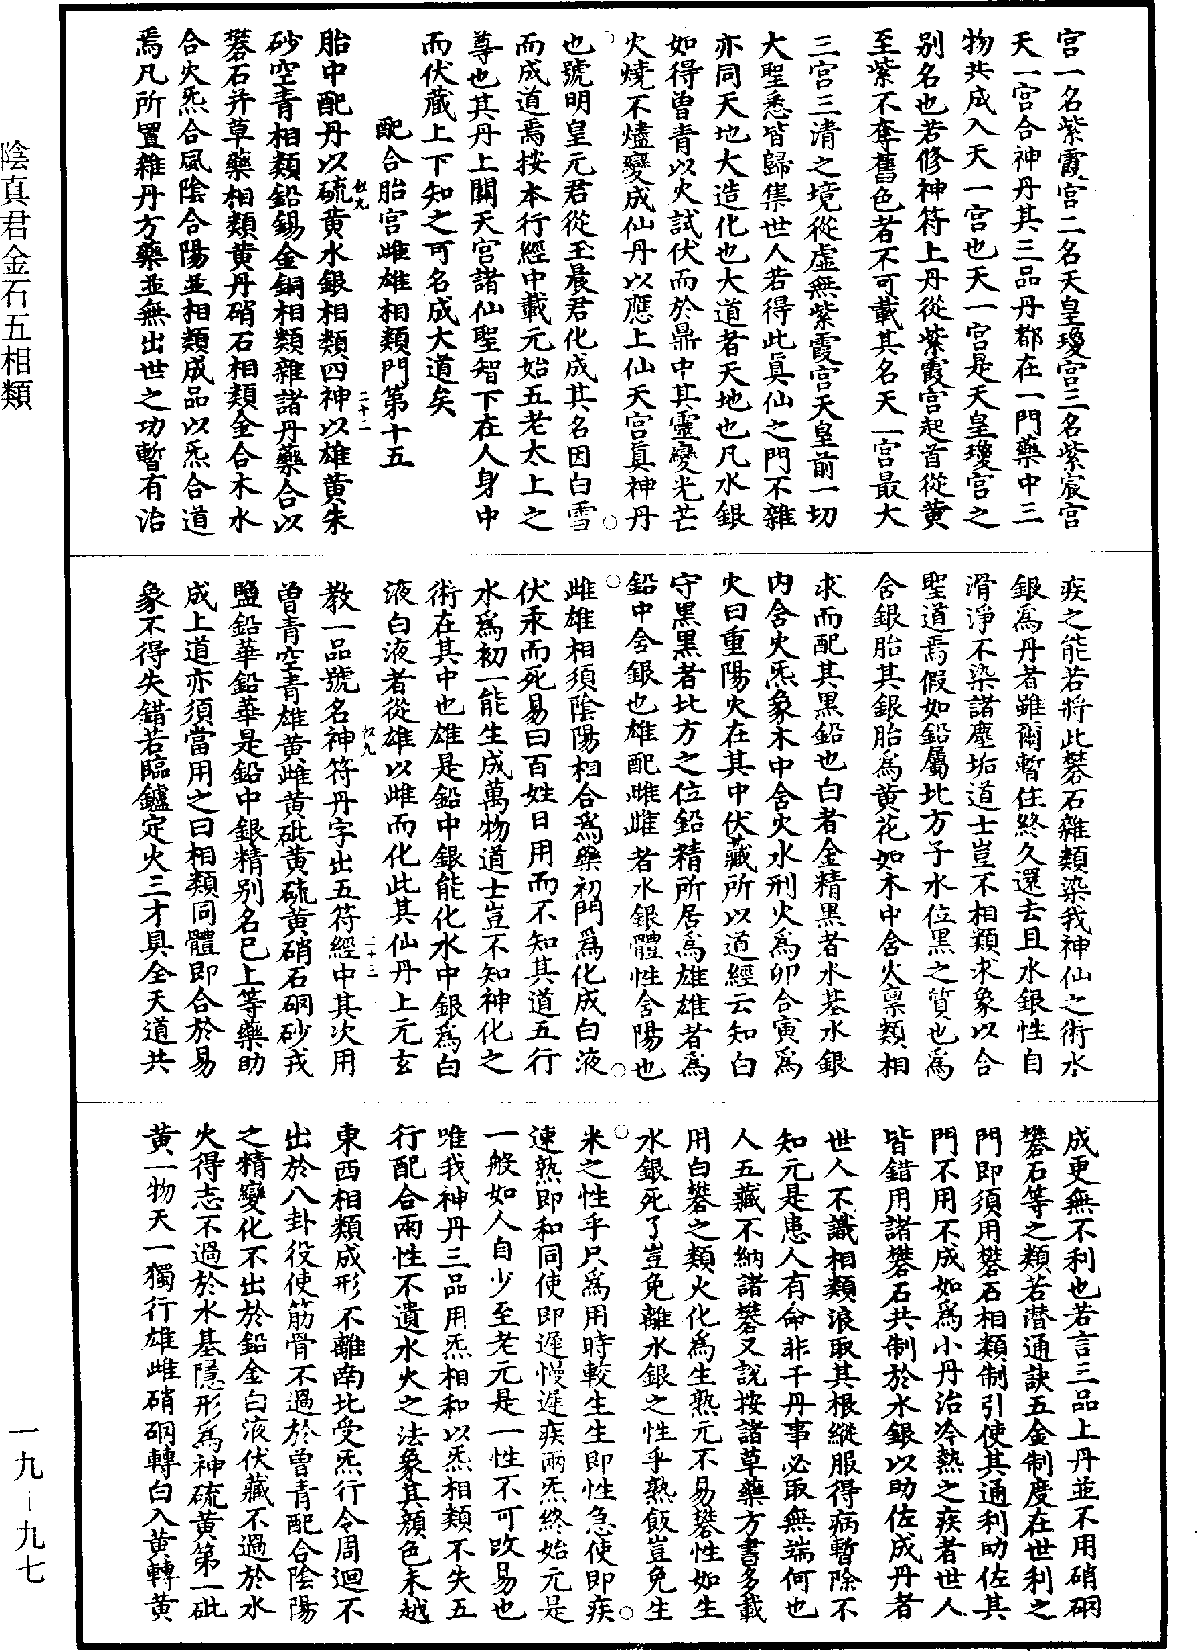 宮一名紫霞宮二名天皇瓊宮三名紫宸宮
天一宮合神丹其三品丹都在一門藥中三
物共成入天一宮也天一宮是天皇瓊宮之
别名也若修神符上丹從紫霞宮起首從黄
至紫不奪舊色者不可載其名天一宮最大
三宮三清之境從虛無紫霞宮天皇前一切
大聖悉皆歸集世人若得此真仙之門不雜
亦同天地大造化也大道者天地也凡水銀
如得曾青以火試伏而於鼎中其靈變光芒
火燒不燼變成仙丹以應上仙天宮真神丹
也號明皇元君從玉晨君化成其名因白雪
而成道焉按本行經中載元始五老太上之
尊也其丹上闗天宮諸仙聖智下在人身中
而伏藏上下知之可名成大道矣
配合胎宮雌雄相類門第十五
胎中配丹以硫黄水銀相類四神以雄黄朱
砂空青相類鉛錫金銅相類雜諸丹藥合以
礬石并草藥相類黄丹硝石相類金合木水
合火炁合風陰合陽並相類成品以炁合道
焉凡所置雜丹方藥並無出世之功暫有治
疾之能若將此礬石雜類染我神仙之術水
銀爲丹者雖爾暫住終久還去且水銀性自
滑淨不染諸塵垢道士豈不相類求象以合
聖道焉假如鉛屬北方子水位黑之質也爲
含銀胎其銀胎爲黄花如木中含火禀類相
求而配其黑鉛也白者金精黑者水基水銀
内含火炁象木中含火水刑火爲卯合寅爲
火曰重陽火在其中伏藏所以道經云知白
守黑黑者北方之位鉛精所居爲雄雄者爲
鉛中含銀也雄配雌雌者水銀體性含陽也
雌雄相須陰陽相合爲藥初門爲化成白液
伏汞而死易曰百姓日用而不知其道五行
水爲初一能生成萬物道士豈不知神化之
術在其中也雄是鉛中銀能化水中銀爲白
液白液者從雄以雌而化此其仙丹上元玄
教一品號名神符丹字出五符經中其次用
曾青空青雄黄雌黄砒黄硫黄硝石硇砂戎
鹽鉛華鉛華是鉛中銀精别名已上等藥助
成上道亦須當用之曰相類同體即合於易
象不得失錯若臨鑪定火三才具全天道共
成更無不利也若言三品上丹並不用硝硇
礬石等之類若潜通訣五金制度在世利之
門即須用礬石相類制引使其通利助佐其
門不用不成如爲小丹治冷熱之疾者世人
皆錯用諸礬石共制於水銀以助佐成丹者
世人不識相類浪取其根縱服得病暫除不
知元是患人有命非干丹事必取無端何也
人五藏不納諸礬又説按諸草藥方書多載
用白礬之類火化爲生熟元不易礬性如生
水銀死了豈免離水銀之性乎熟飯豈免生
米之性乎只爲用時較生生即性急使即疾
速熟即和同使即遲慢遲疾兩炁終始元是
一般如人自少至老元是一性不可改易也
唯我神丹三品用炁相和以炁相類不失五
行配合兩性不遺水火之法象其顔色未越
東西相類成形不離南北受炁行令周迴不
出於八卦役使筋骨不過於曾青配合陰陽
之精變化不出於鉛金白液伏藏不過於水
火得志不過於水基隱形爲神硫黄第一砒
黄一物天一獨行雄雌硝硇轉白入黄轉黄
陰真君金石五相類
一九－九七